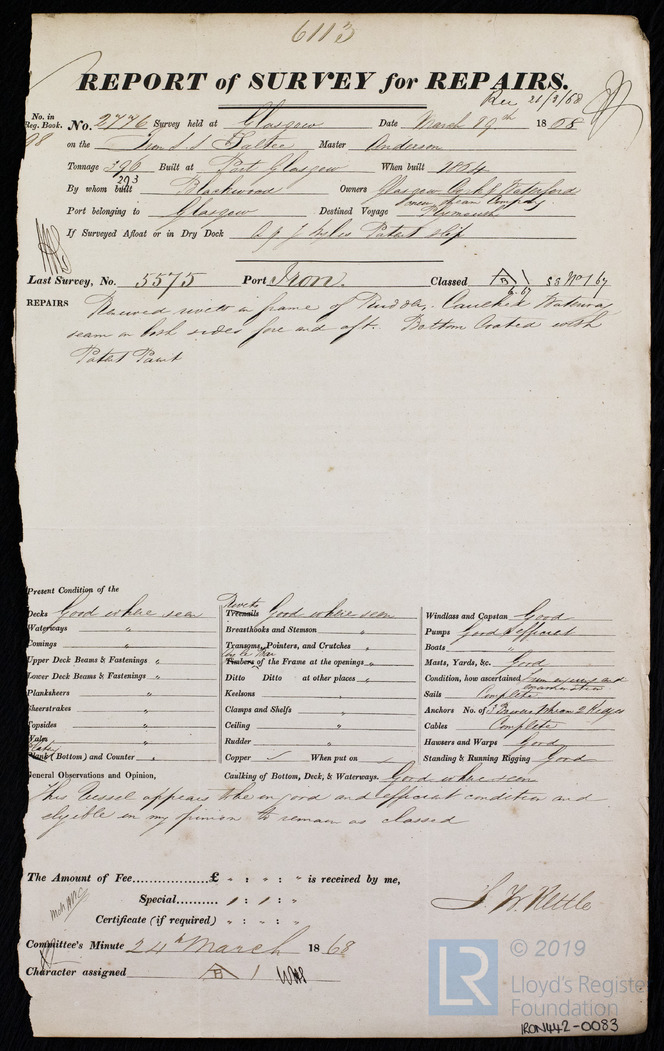 6113
REPORT of SURVEY for REPAIRS.
Rec 21/3/68
No. in Reg. Book.
98
No. 2776 Survey held at Glasgow Date March 19th 1868
on the Iron S.S. Master Anderson
Tonnage 396 Built at Port Glasgow When built 1854
293
By whom built Blackwood Owners Glasgow Cork & Waterford
Steam Company
Port belonging to Glasgow Destined Voyage Plymouth
If Surveyed Afloat or in Dry Dock Patent Slip
Last Survey, No. 5575 Port Iron. Classed A 1 SS No 1 67
6.67
REPAIRS Renewed rivets in frame of Rudder, Caulked Waterway
seam on both sides fore and aft. Bottom Coated with
Patent Paint
Present Condition of the
Decks Good where seen
Waterways "
Comings "
Upper Deck Beams & Fastenings "
Lower Deck Beams & Fastenings "
Planksheers "
Sheerstrakes "
Topsides "
Wales "
Plates
Plank (Bottom) and Counter "
Rivets
Treenails Good where seen
Breasthooks and Stemson "
Transoms, Pointers, and Crutches "
Timbers of the Frame at the openings "
Ditto Ditto at other places "
Keelsons "
Clamps and Shelfs "
Ceiling "
Rudder "
Copper When put on
Caulking of Bottom, Deck, & Waterways. Good where seen
Windlass and Capstan Good
Pumps Good & efficient
Boats "
Masts, Yards, &c. Good
Condition, how ascertained from survey and
Sails Complete
Anchors No. of 3 Bowers 1 Stream 2 Kedges
Cables Complete
Hawsers and Warps Good
Standing & Running Rigging Good
General Observations and Opinion,
This Vessel appears to be in good and efficient condition and
eligible in my opinion to remain as classed
The Amount of Fee £ " : " : " is received by me,
Special 1 : 1 : "
Certificate (if required) " : " : "
Committee's Minute 24th March 1868
Character assigned A 1
© 2019
LR
Lloyd's Register
Foundation
IRON442-0083